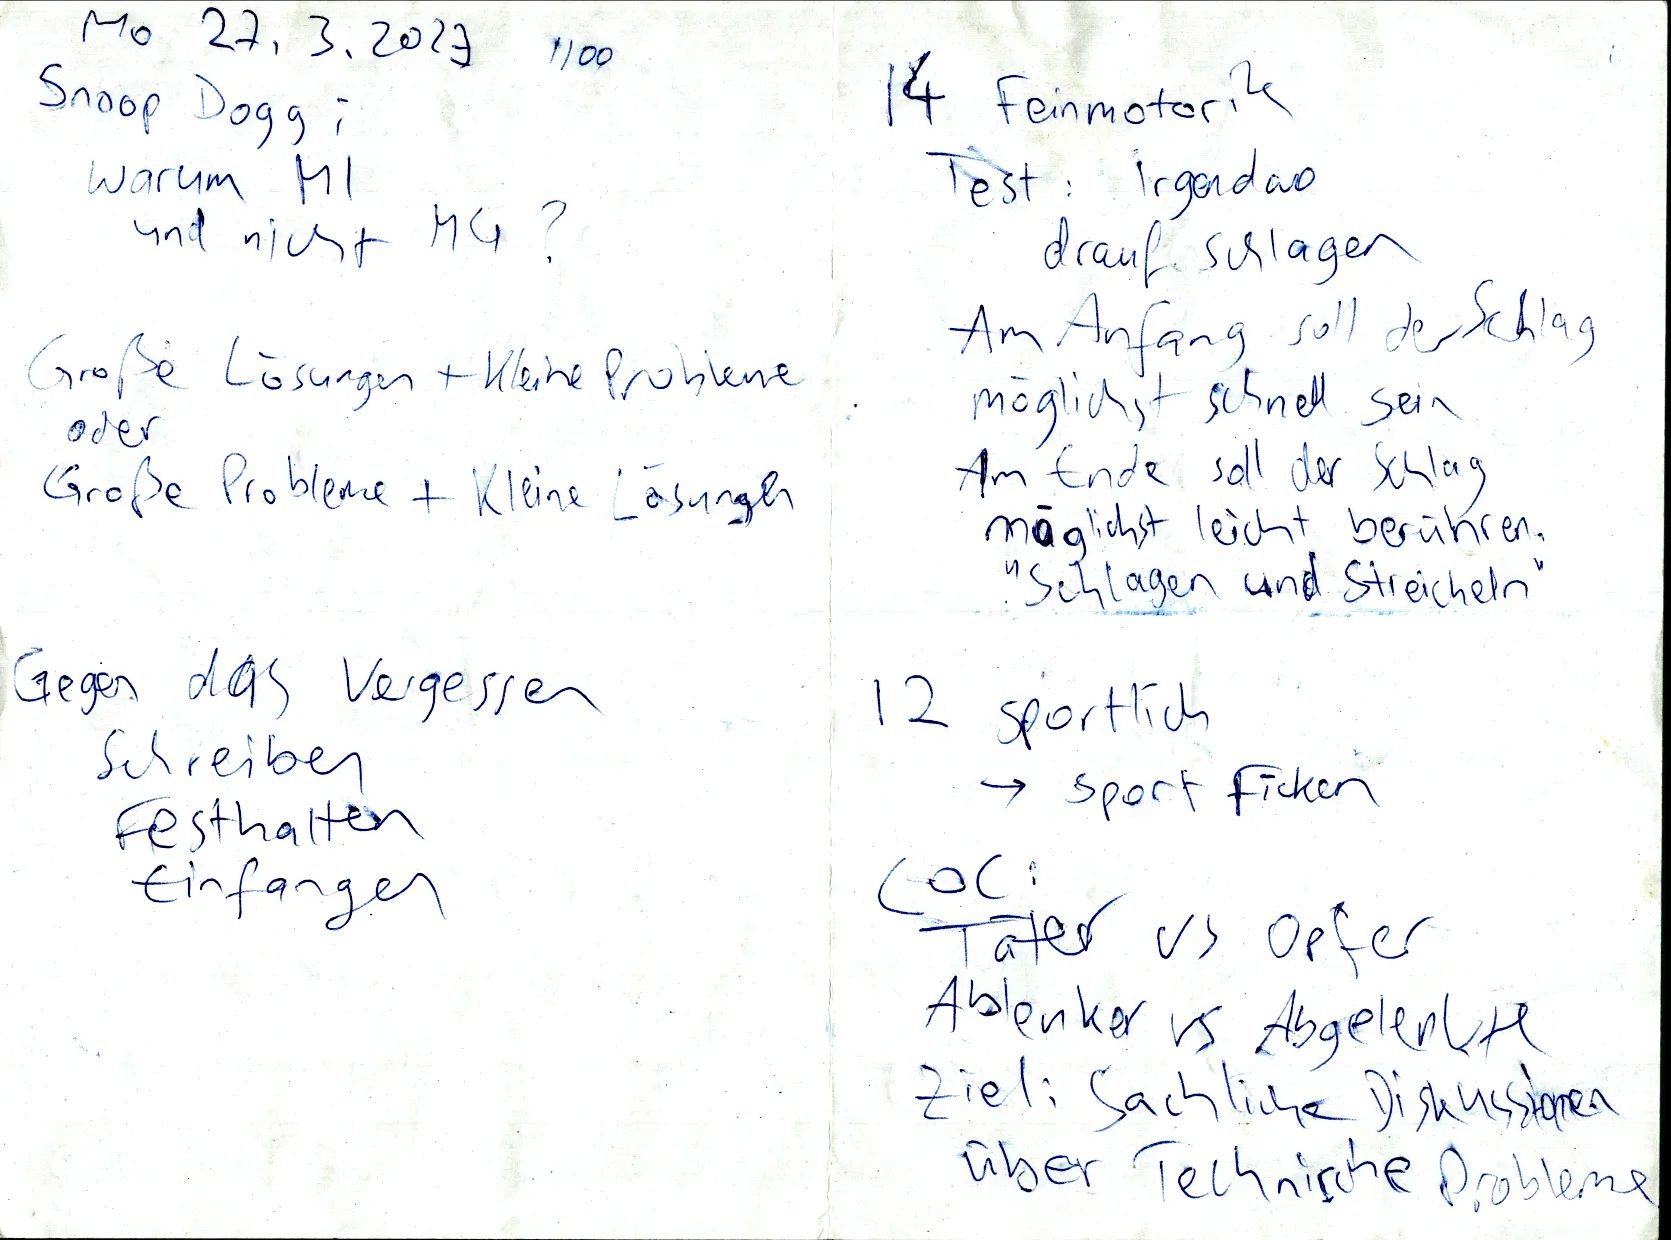 Mo 27.3.2023 1100
Snoop Dogg:
Warum M1
und nicht M4?
Große Lösungen + Kleine Probleme
oder
Große Probleme + Kleine Lösungen
Gegen das Vergessen
Schreiben
Festhalten
Einfangen
14 Feinmotorik
Test: Irgendwo
drauf schlagen
Am Anfang soll der Schlag
möglichst schnell sein
Am Ende soll der Schlag
möglichst leicht berühren.
"Schlagen und Streicheln"
12 sportlich
→ sport Ficken
COC:
Täter vs Opfer
Ablenker vs Abgelenkte
Ziel: Sachliche Diskussionen
über Technische Probleme